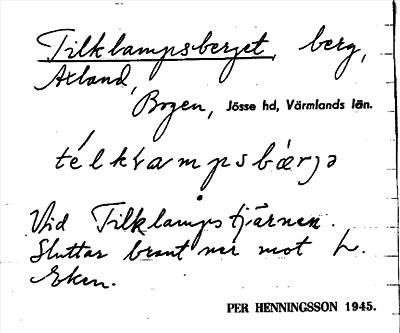 Tilklampsberget, berg,
Axland,
Bogen, Jösse hd, Värmlands län.
télkɫampsbærjə
Vid Tilklampstjärnen.
Sluttar brant ner mot L.
Eken.
PER HENNINGSSON 1945.